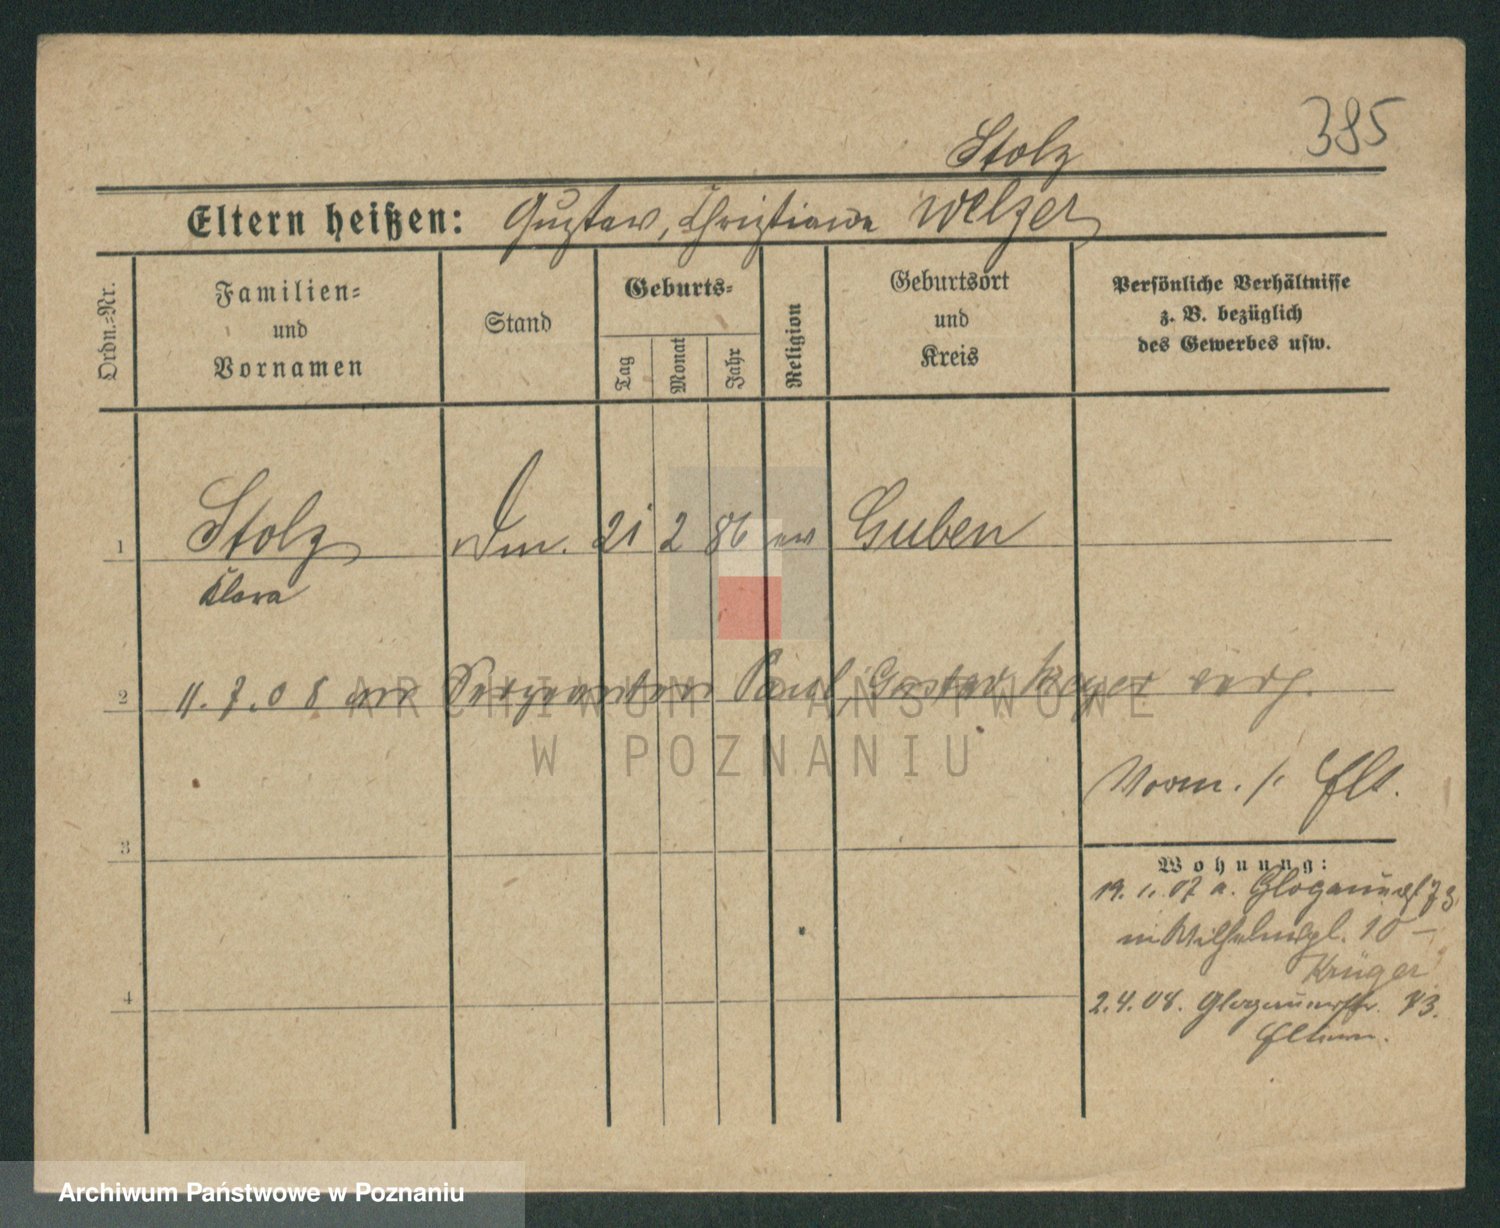 385
Stolz
Eltern heißen: Gustav, Christiane Welzer
Ordn.=Nr.
Familien=
und
Vornamen
Stand
Geburts=
Tag
Monat
Jahr
Religion
Geburtsort
und
Kreis
Persönliche Verhältnisse
z. B. bezüglich
des Gewerbes usw.
1 Stolz 21 2 86 ev Guben
Klara
2 11.7.08 Paul Gustav verh.
Vorm. s. Elt.
3
Wohnung:
19. 1. 07 a. 73
Wilhelmspl. 10 –
Krüger
4
2.4.08. Glogauerstr. 73.
Eltern.
ARCHIWUM PAŃSTWOWE
W POZNANIU
Archiwum Państwowe w Poznaniu